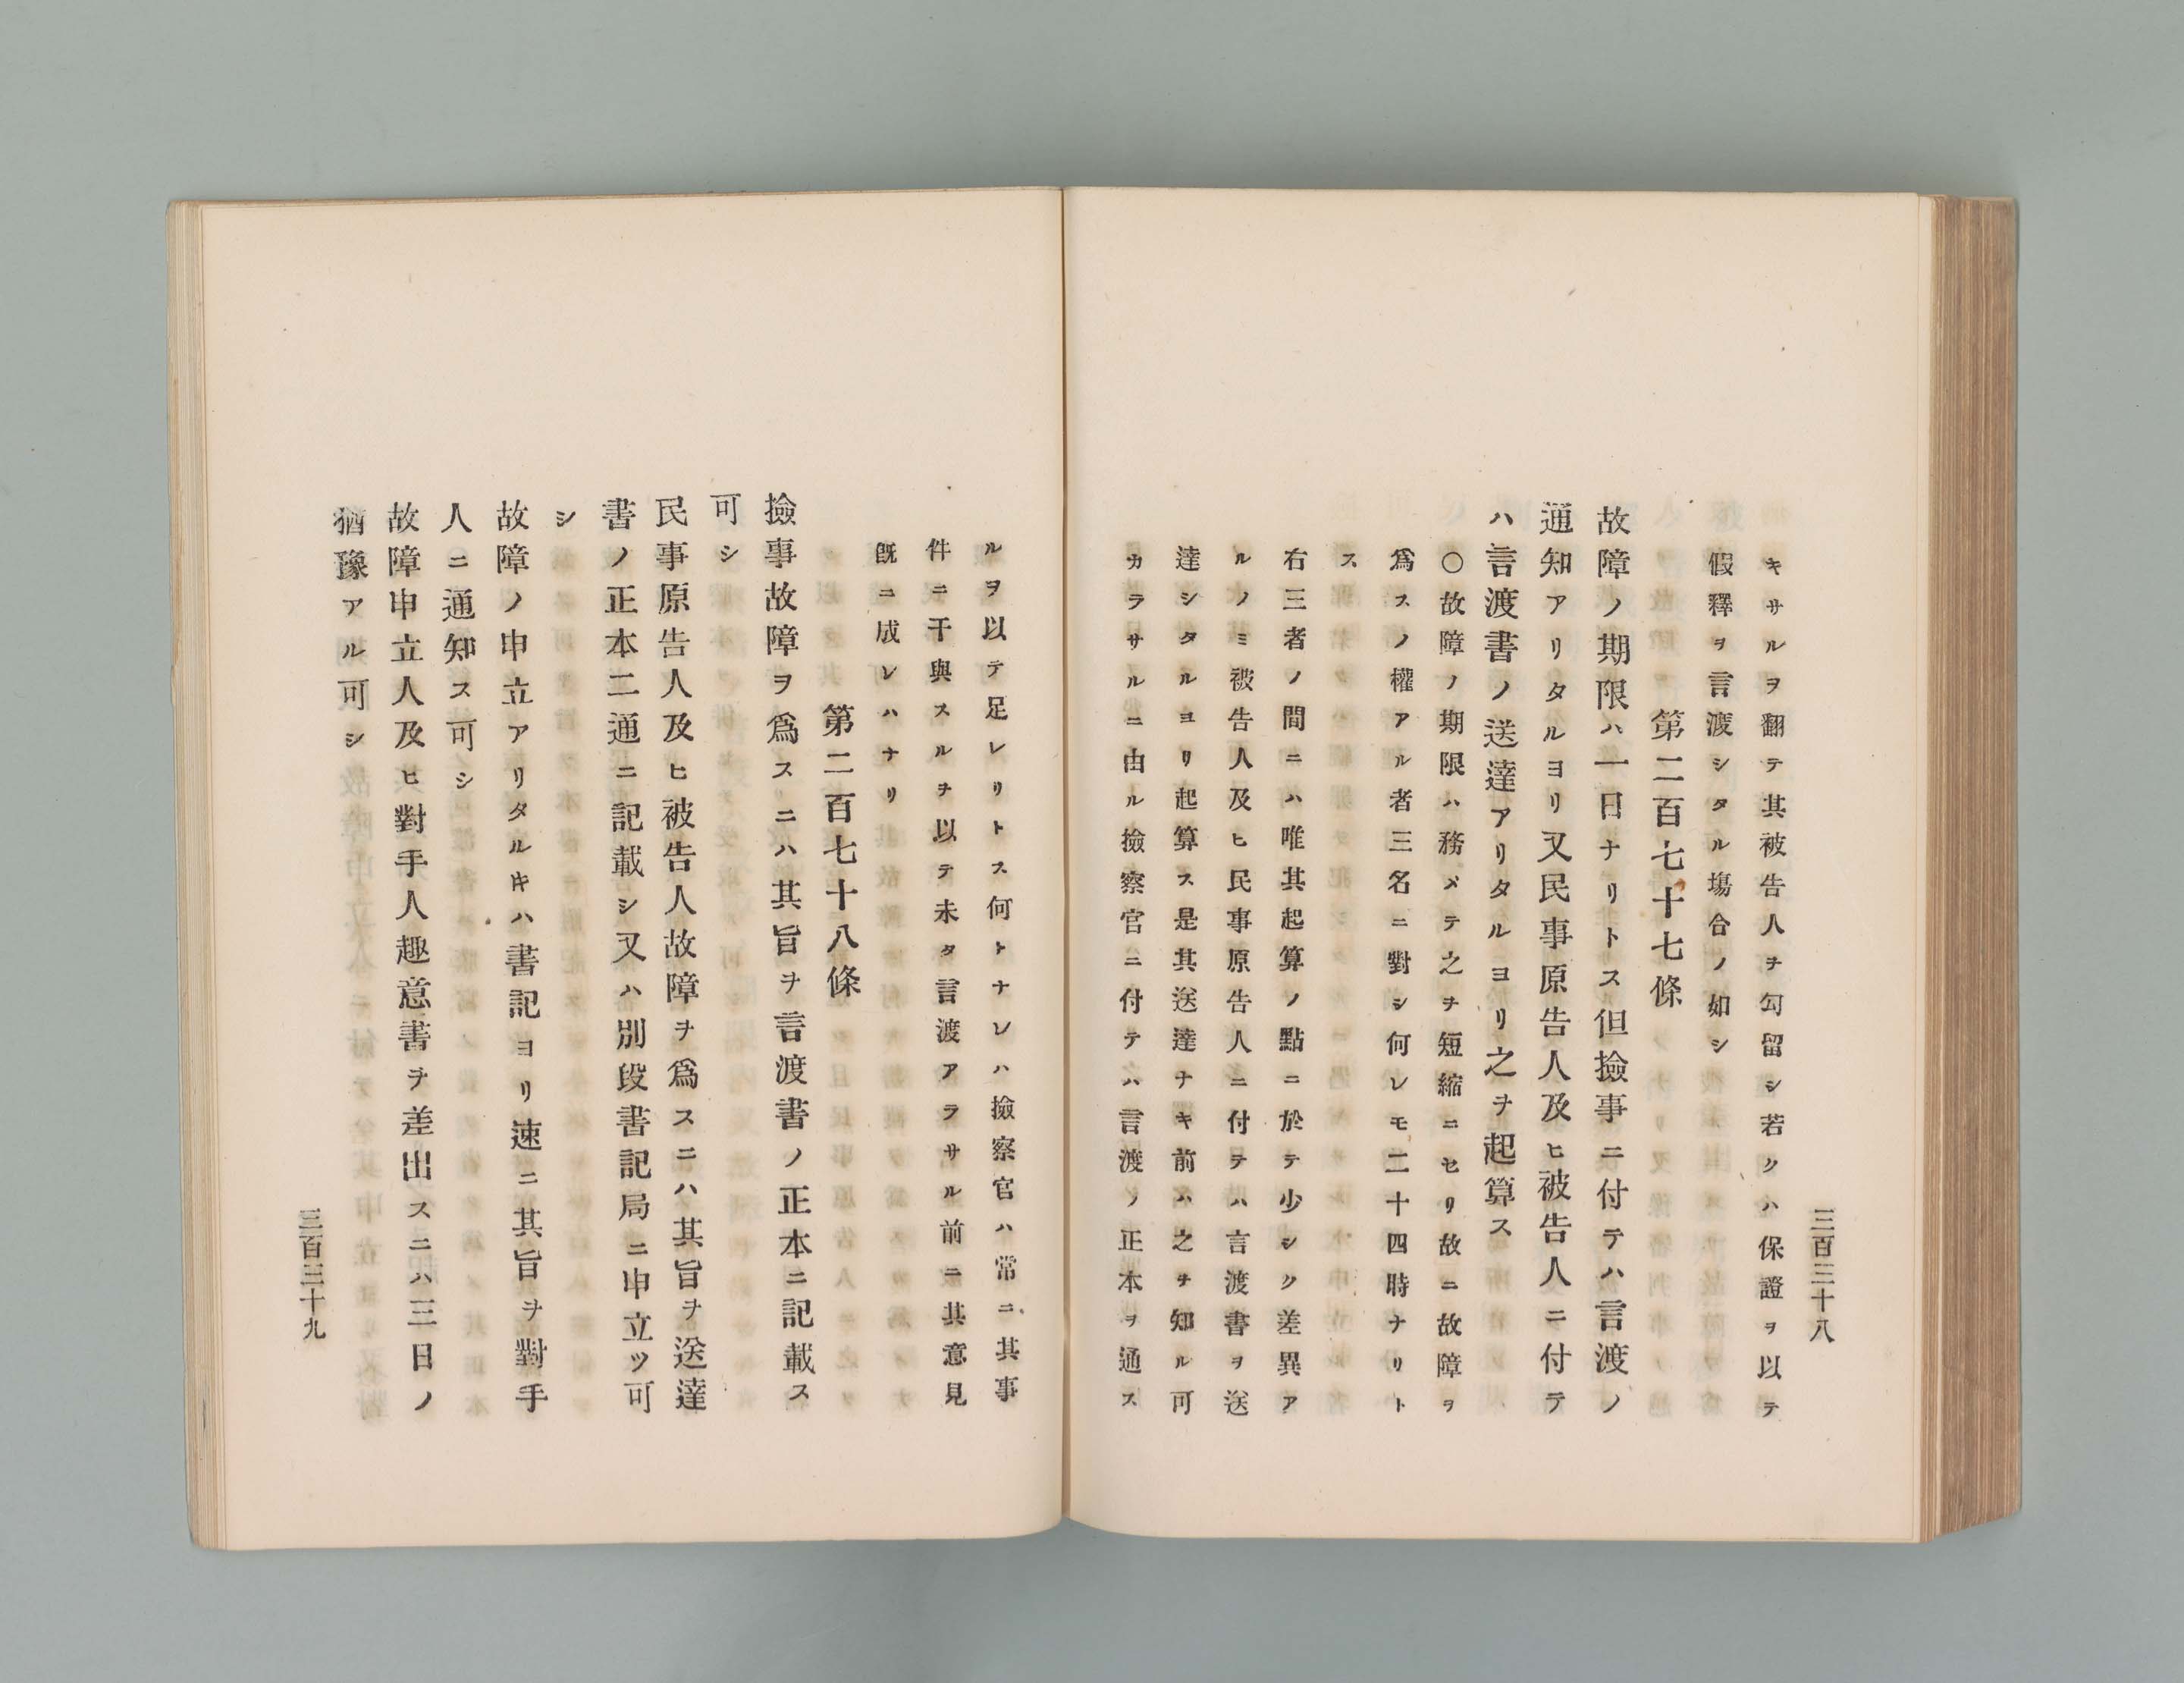 三百三十八
キサルヲ翻テ其被告人ヲ勾留シ若クハ保證ヲ以テ
假釋ヲ言渡シタル塲合ノ如シ
第二百七十七條
故障ノ期限ハ一日ナリトス但撿事ニ付テハ言渡ノ
通知アリタルヨリ又民事原告人及ヒ被告人ニ付テ
ハ言渡書ノ送達アリタルヨリ之ヲ起算ス
○故障ノ期限ハ務メテ之ヲ短縮ニセリ故ニ故障ヲ
爲スノ權アル者三名ニ對シ何レモ二十四時ナリト
ス
右三者ノ間ニハ唯其起算ノ點ニ於テ少シク差異ア
ルノミ被告人及ヒ民事原告人ニ付テハ言渡書ヲ送
達シタルヨリ起算ス是其送達ナキ前ハ之ヲ知ル可
カラサルニ由ル撿察官ニ付テハ言渡ノ正本ヲ通ス
ルヲ以テ足レリトス何トナレハ撿察官ハ常ニ其事
件ニ干與スルヲ以テ未タ言渡アラサル前ニ其意見
旣ニ成レハナリ
第二百七十八條
撿事故障ヲ爲スニハ其旨ヲ言渡書ノ正本ニ記載ス
可シ
民事原告人及ヒ被告人故障ヲ爲スニハ其旨ヲ送達
書ノ正本二通ニ記載シ又ハ別段書記局ニ申立ツ可
シ
故障ノ申立アリタルキハ書記ヨリ速ニ其旨ヲ對手
人ニ通知ス可シ
故障申立人及ヒ對手人趣意書ヲ差出スニハ三日ノ
猶豫アル可シ
三百三十九